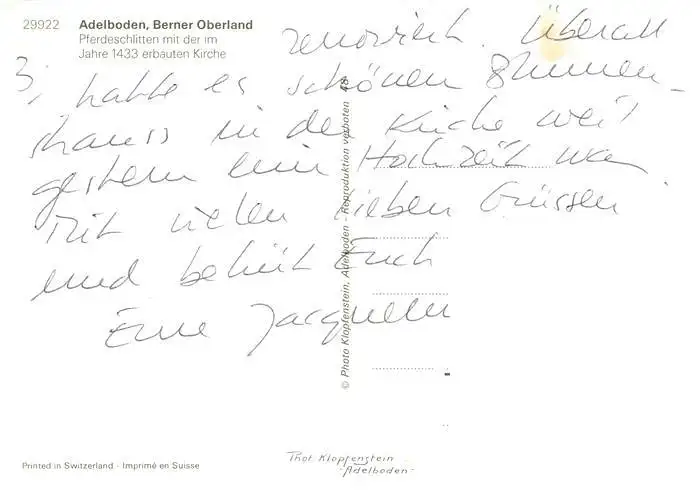 29922 Adelboden, Berner Oberland
Pferdeschlitten mit der im
Jahre 1433 erbauten Kirche
3,
renoviert. Überall
hatte es schönen Blumen-
strauss in der Kirche weil
gestern ein Hochzeit war
Mit vielen lieben Grüssen
und behüt Euch
Eure Jacqueline
© Photo Klopfenstein, Adelboden - Reproduktion verboten
Printed in Switzerland - Imprimé en Suisse
Phot. Klopfenstein
-Adelboden-